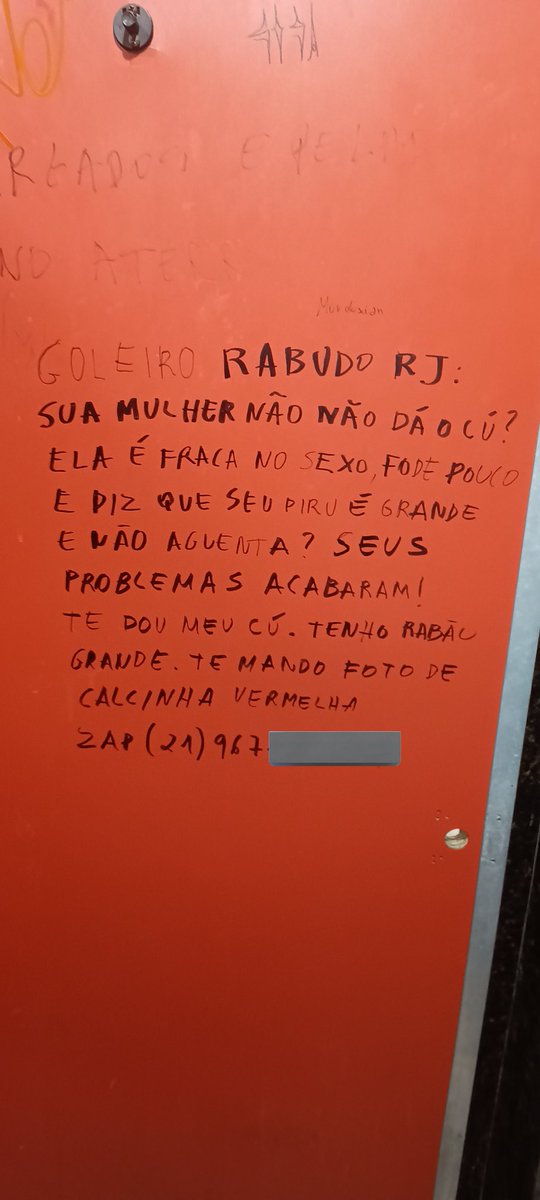 Murdesian
GOLEIRO RABUDO RJ:
SUA MULHER NÃO NÃO DÁ O CÚ?
ELA É FRACA NO SEXO, FODE POUCO
E DIZ QUE SEU PIRU É GRANDE
E NÃO AGUENTA? SEUS
PROBLEMAS ACABARAM!
TE DOU MEU CÚ. TENHO RABÃO
GRANDE. TE MANDO FOTO DE
CALCINHA VERMELHA
ZAP (21) 967